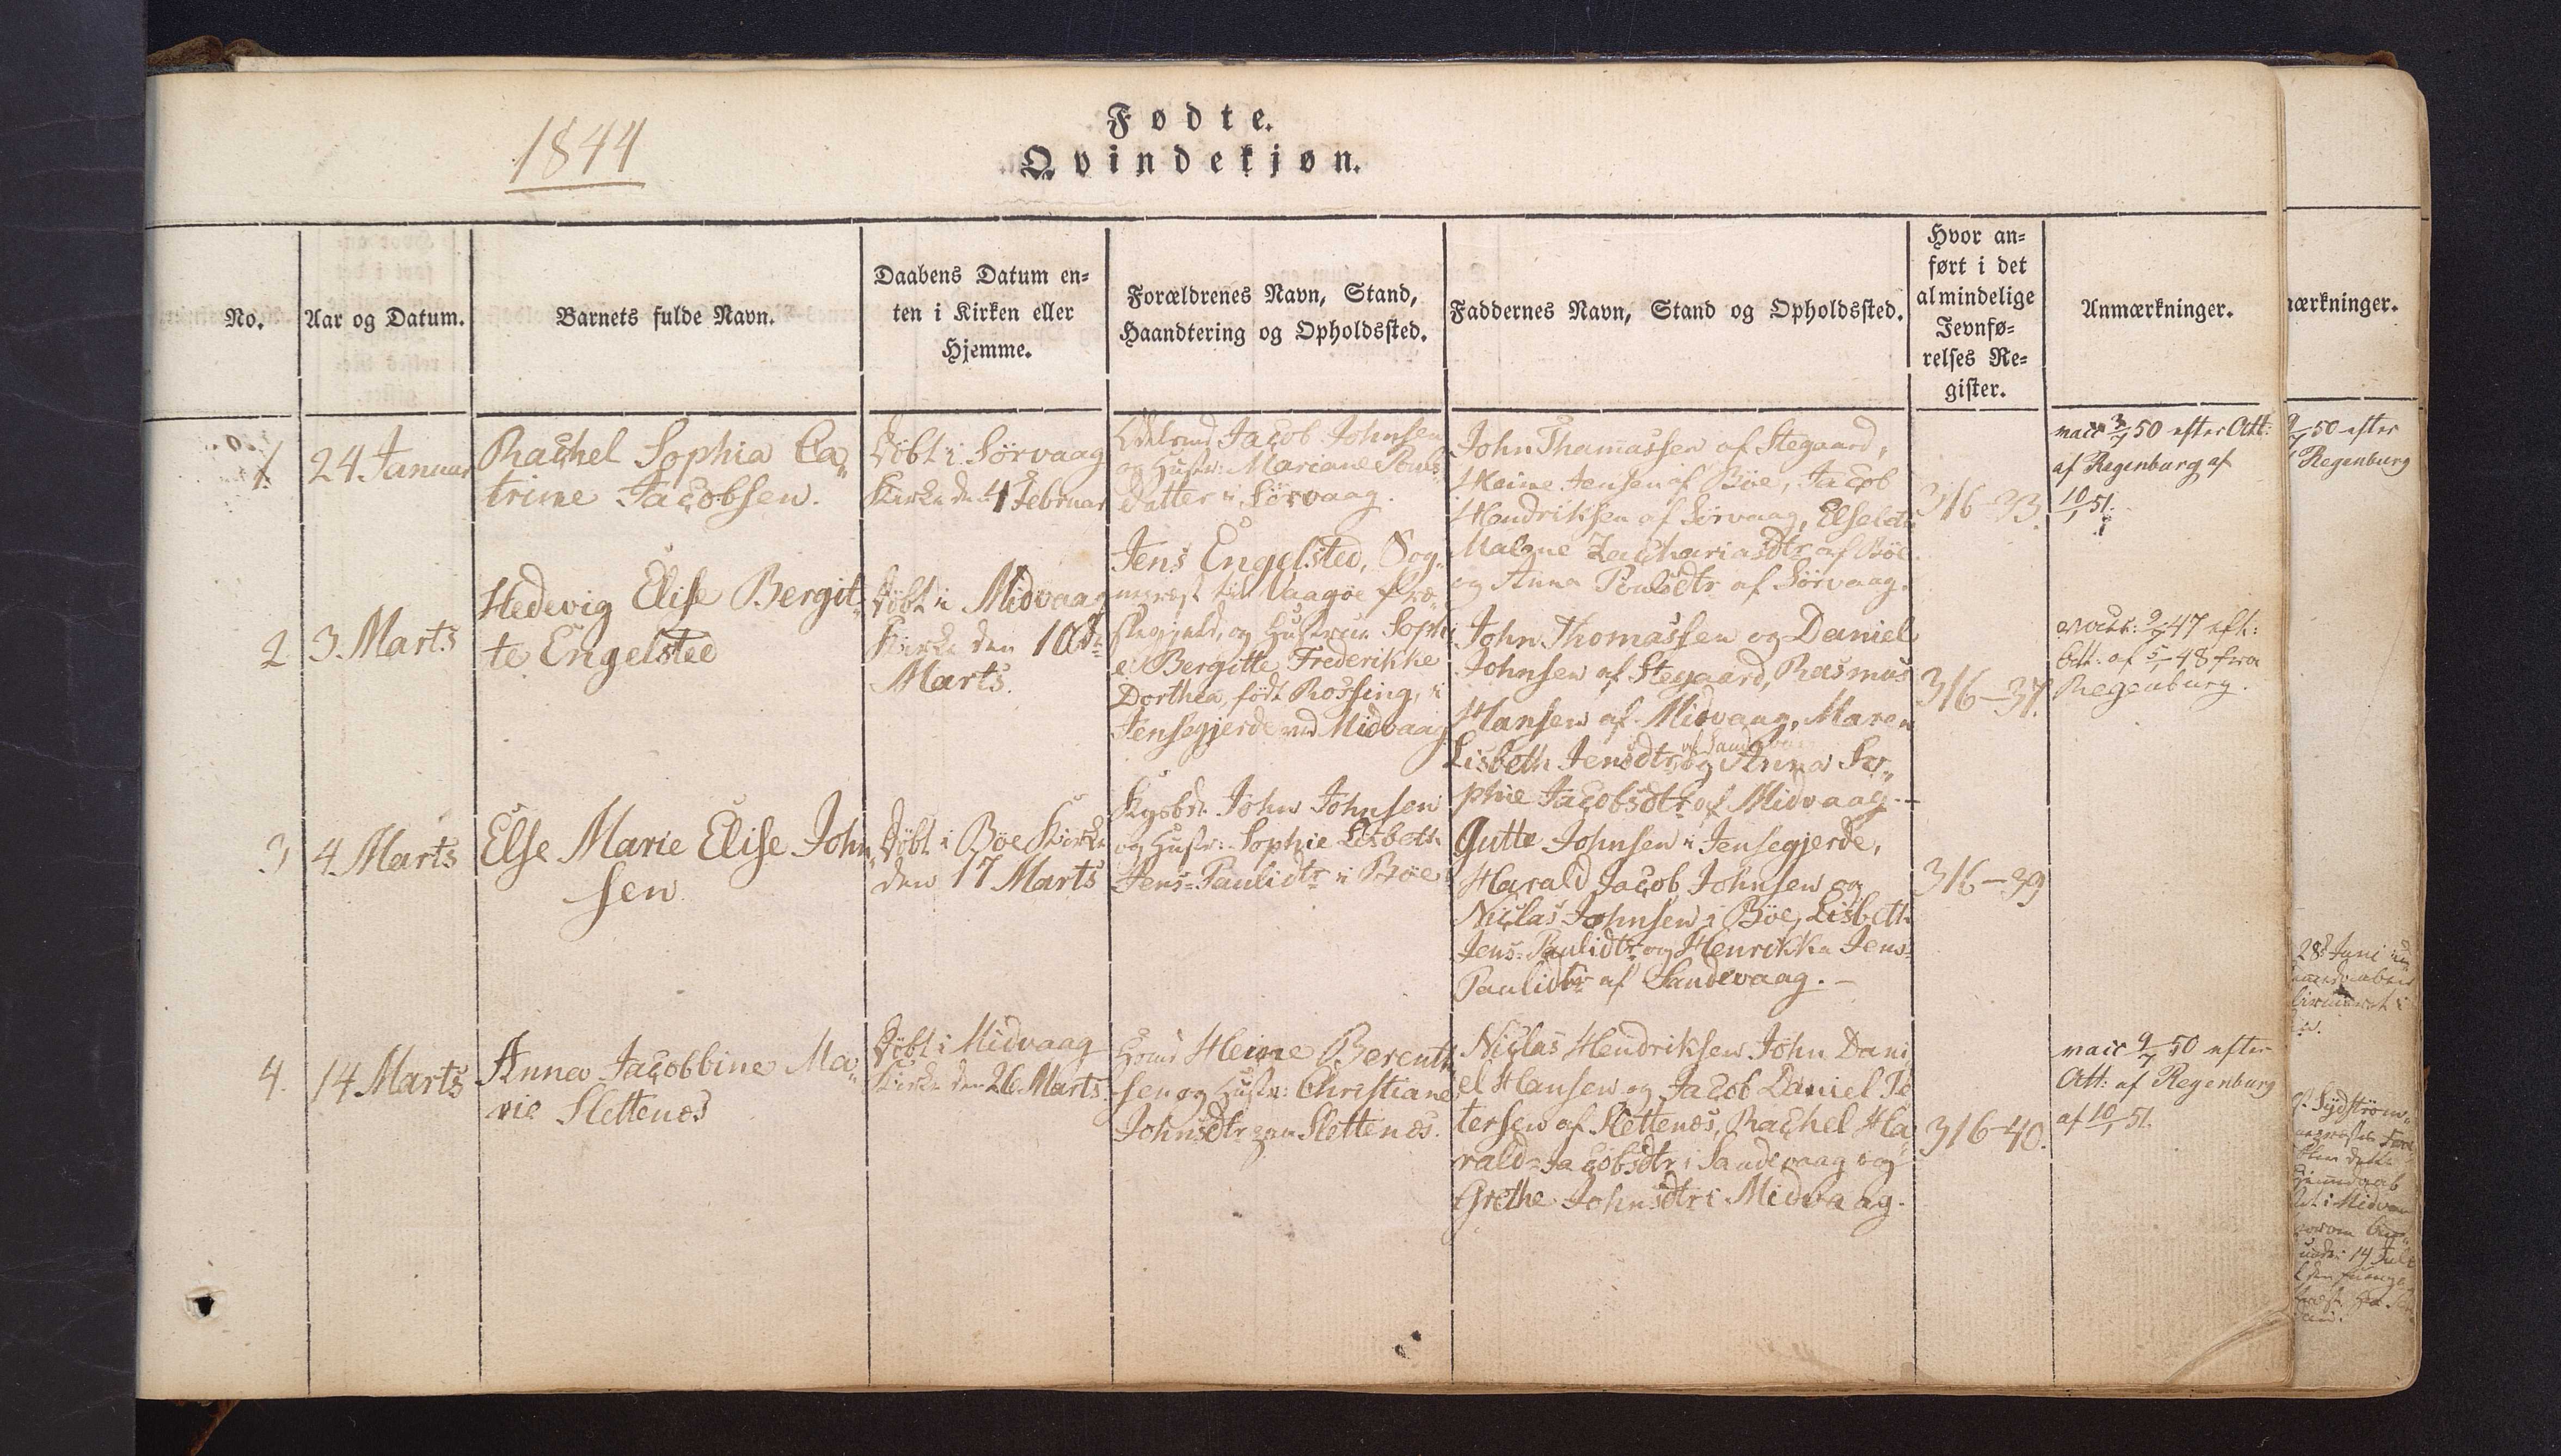 1844
Fødte.
Qvindekjøn.
No.
Aar og Datum.
Barnets fulde Navn.
Daabens Datum en-
ten i Kirken eller
Hjemme.
Forældrenes Navn, Stand,
Haandtering og Opholdssted.
Faddernes Navn, Stand og Opholdssted.
Hvor an-
ført i det
almindelige
Jevnfø-
relses Re-
gister.
Anmærkninger.
1.
24. Januar
Rachel Sophia Ca-
trine Jacobsen.
Döbt i Sörvaag
Kirke d. 4 Februar
Jacob Johnsen
og Hustr: Mariane Pouls
Datter i Sörvaag.
John Thomassen af Stegaard,
Heine Jensen af Böe, Jacob
Hendriksen af Sörvaag, Elsebet
Malene Zachariasdtr af Böe
og Anna Poulsdtr af Sörvaag.
316-33.
vacc 3/7 50 efter Att:
af Regenburg af
10/1 51.
2
3. Marts
Hedevig Elise Bergit-
te Engelsted
Döbt i Midvaag
Kirke den 10de
Marts.
Jens Engelsted, Sog-
nepræst til Vaagöe Præ-
stegjeld, og Hustrue Sophi
e Bergitte Frederikke
Dorthea, födt Rossing, i
Jensegjerde ved Midvaag
John Thomassen og Daniel
Johnsen af Stegaard, Rasmus
Hansen af Midvaag, Maren
Lisbeth Jensdtr af Sandevaag og Anna So-
phie Jacobsdtr af Midvaag.-
316-37.
vacc: 9/7 47 eft:
Att: af 5/1 48 fra
Regenburg.
3
4. Marts
Else Marie Elise John-
sen
Döbt i Böe Kirke
den 17 Marts
John Johnsen
og Hustr: Sophie Lisbeth
Jens-Paulidtr i Böe
Gutte Johnsen i Jensegjerde,
Harald Jacob Johnsen og
Niclas Johnsen i Böe, Lisbeth
Jens-Paulidtr og Henrikka Jens-
Paulidtr af Sandevaag.-
316-39
4.
14 Marts
Anna Jacobbine Ma-
rie Slettenæs
Döbt i Midvaag
Kirke den 26. Marts.
Heine Berent-
sen og Hustr: Christiane
Johnsdtr paa Slettenæs.
Niclas Hendriksen John Dani
el Hansen og Jacob Daniel Pe
tersen af Slettenæs, Rachel Ha-
rald-Jacobsdtr i Sandevaag og
Grethe Johnsdtr i Midvaag.
316-40.
vacc 9/7 50 efter
Att: af Regenburg
af 10/1 51.
nærkninger.
9/7 50 efter
Regenburg
28de Juni
Sydström-
i Midvaa
14 Juli